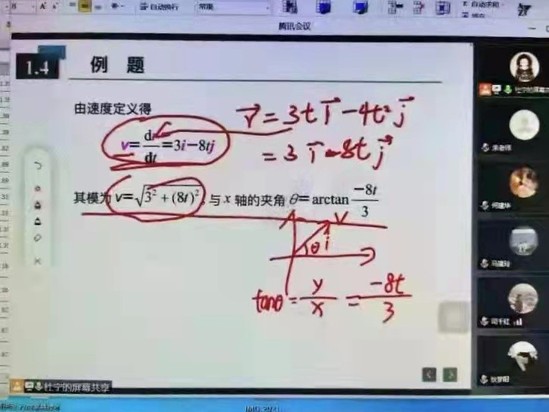 自动换行
常规
腾讯会议
1.4 例 题
由速度定义得
v=dr/dt=3i−8tj
v⃗ = 3t i⃗ − 4t² j⃗
= 3 i⃗ − 8t j⃗
其模为 v=√3²+(8t)², 与 x 轴的夹角 θ=arctan −8t/3
V
θ
tanθ = y/x = −8t/3
杜宁的屏幕共享